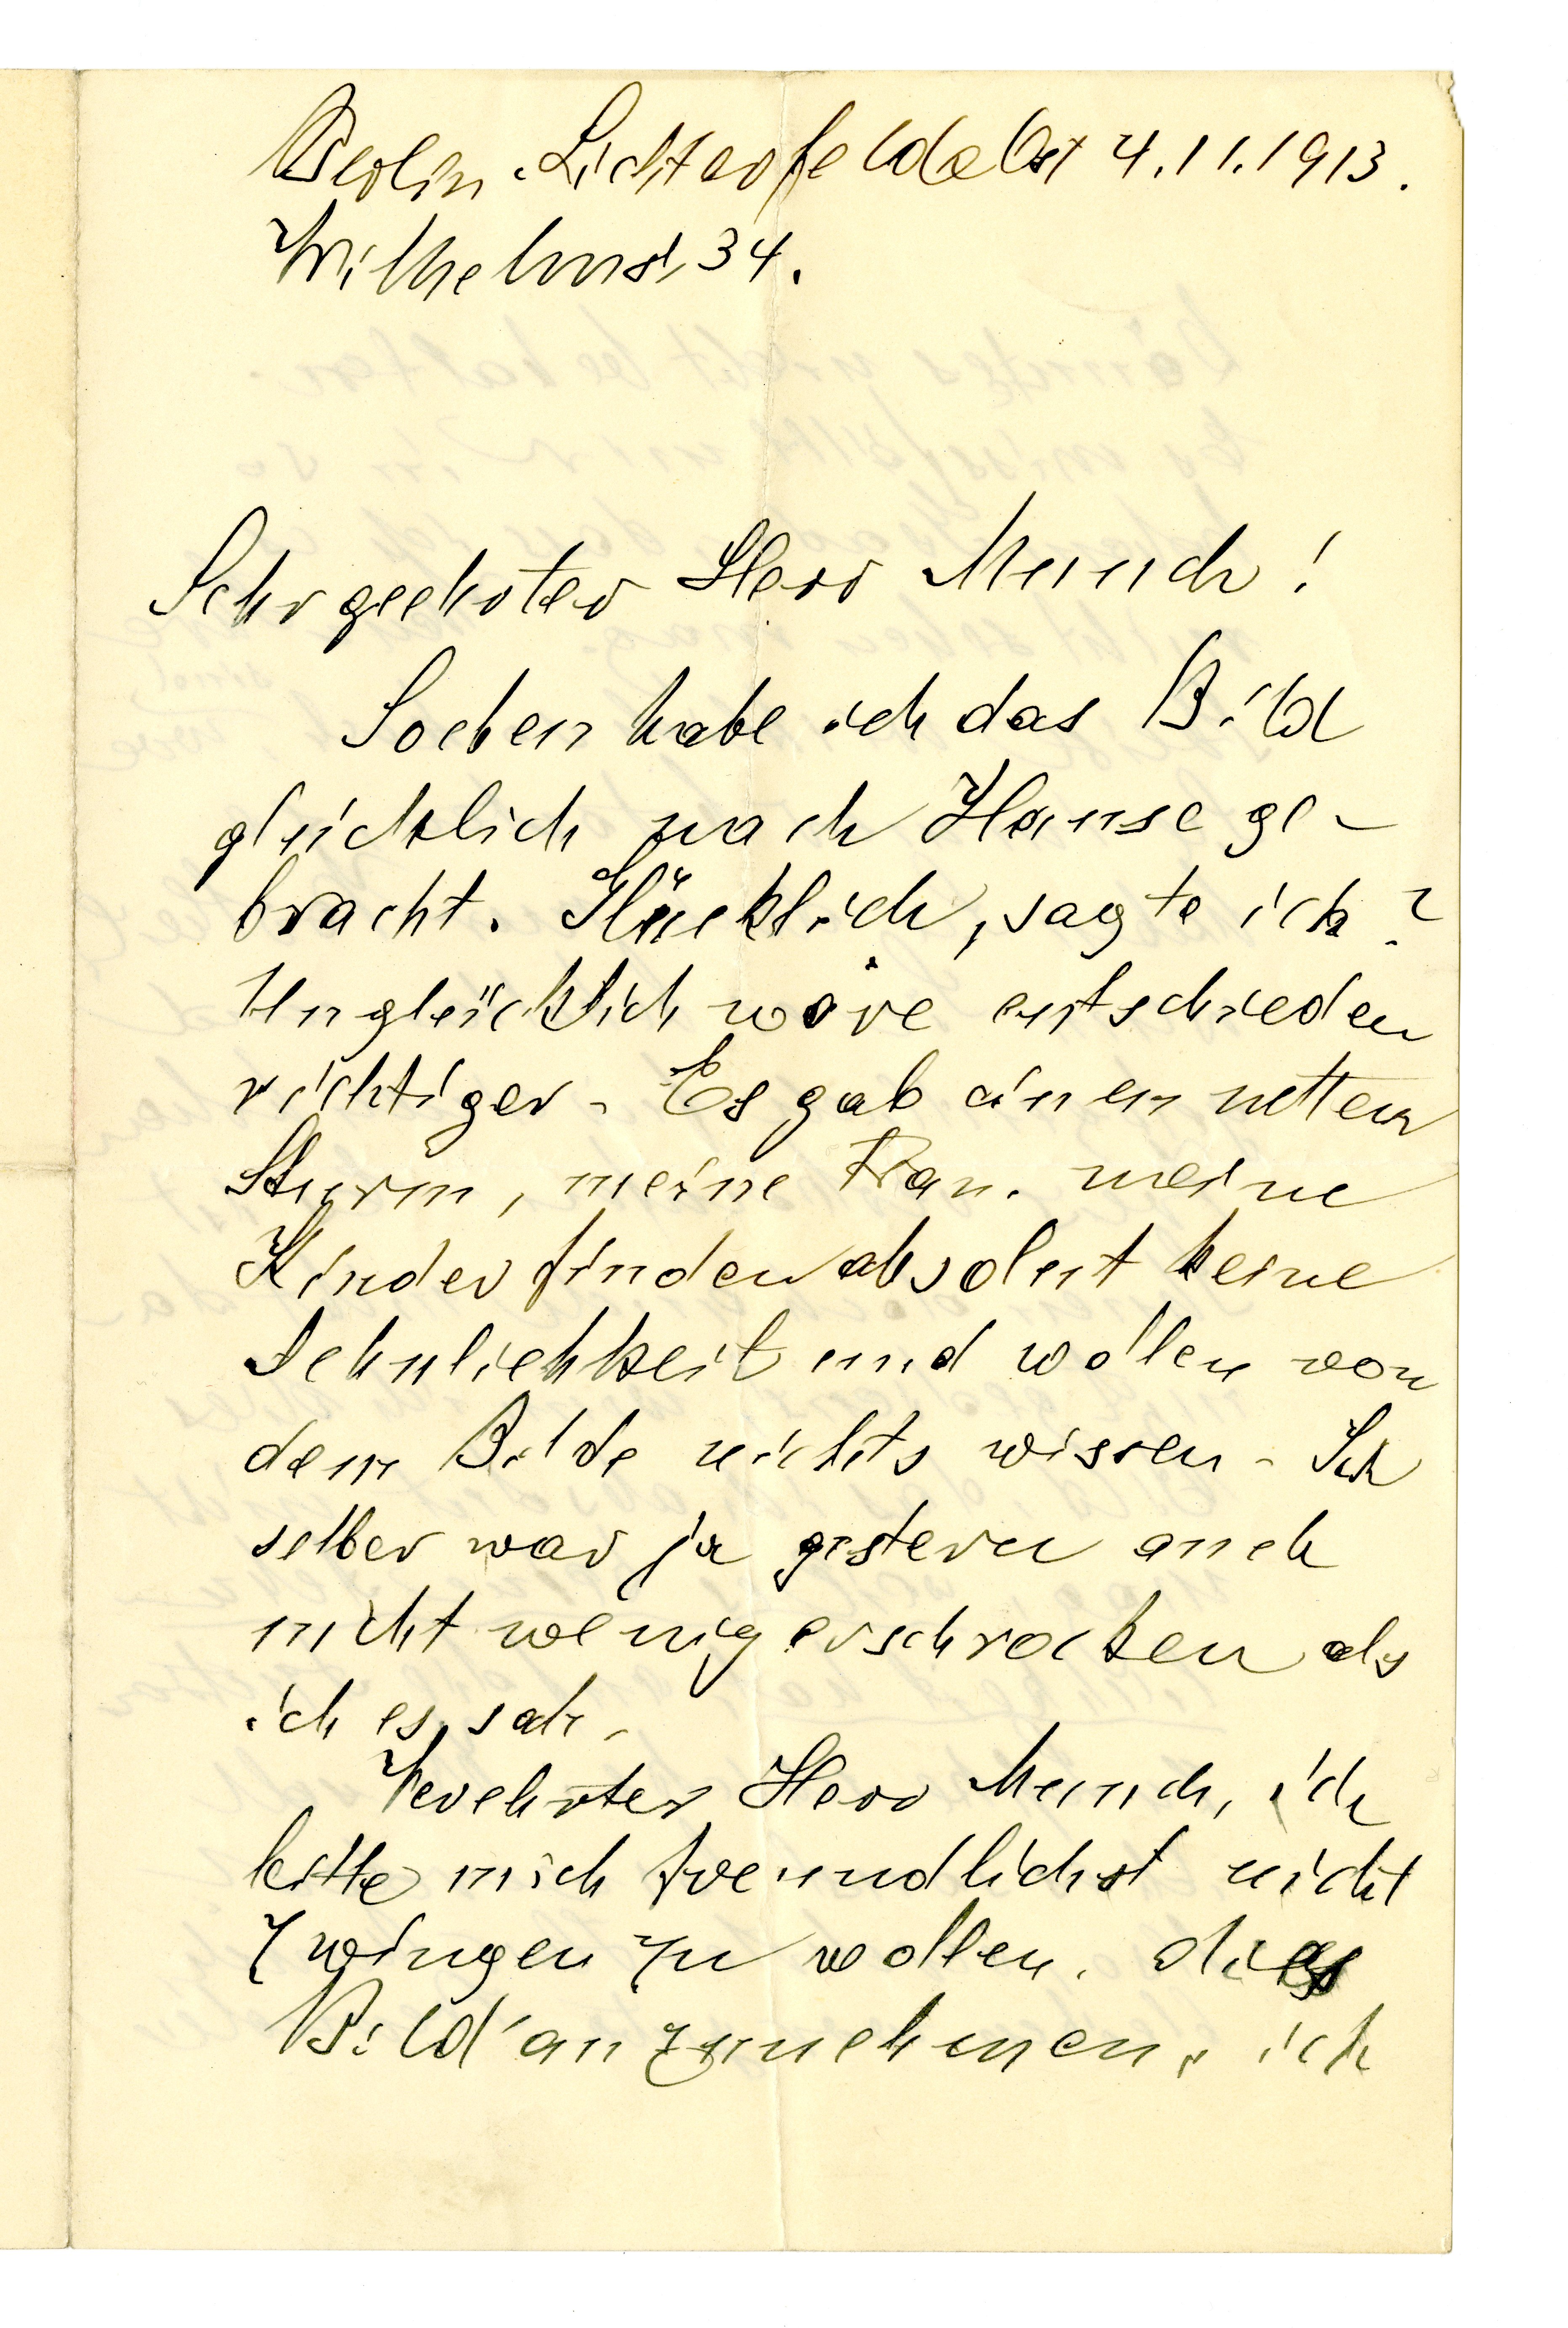 Berlin-Lichterfelde Ost 4.11.1913.
Wilhelmst, 34.
Sehr geehrter Herr Munch!
Soeben habe ich das Bild
glücklich nach Hause ge-
bracht. Glücklich, sagte ich?
Unglücklich wäre entschieden
richtiger - Es gab einen netten
Sturm, meine Frau, meine
Kinder finden absolut keine
Aehnlichkeit und wollen von
dem Bilde nichts wissen - Ich
selber war ja gestern auch
nicht wenig erschrocken als
ich es sah,
Verehrter Herr Munch, ich
bitte mich freundlichst nicht
zwingen zu wollen, dies
Bild anzunehmen, ich